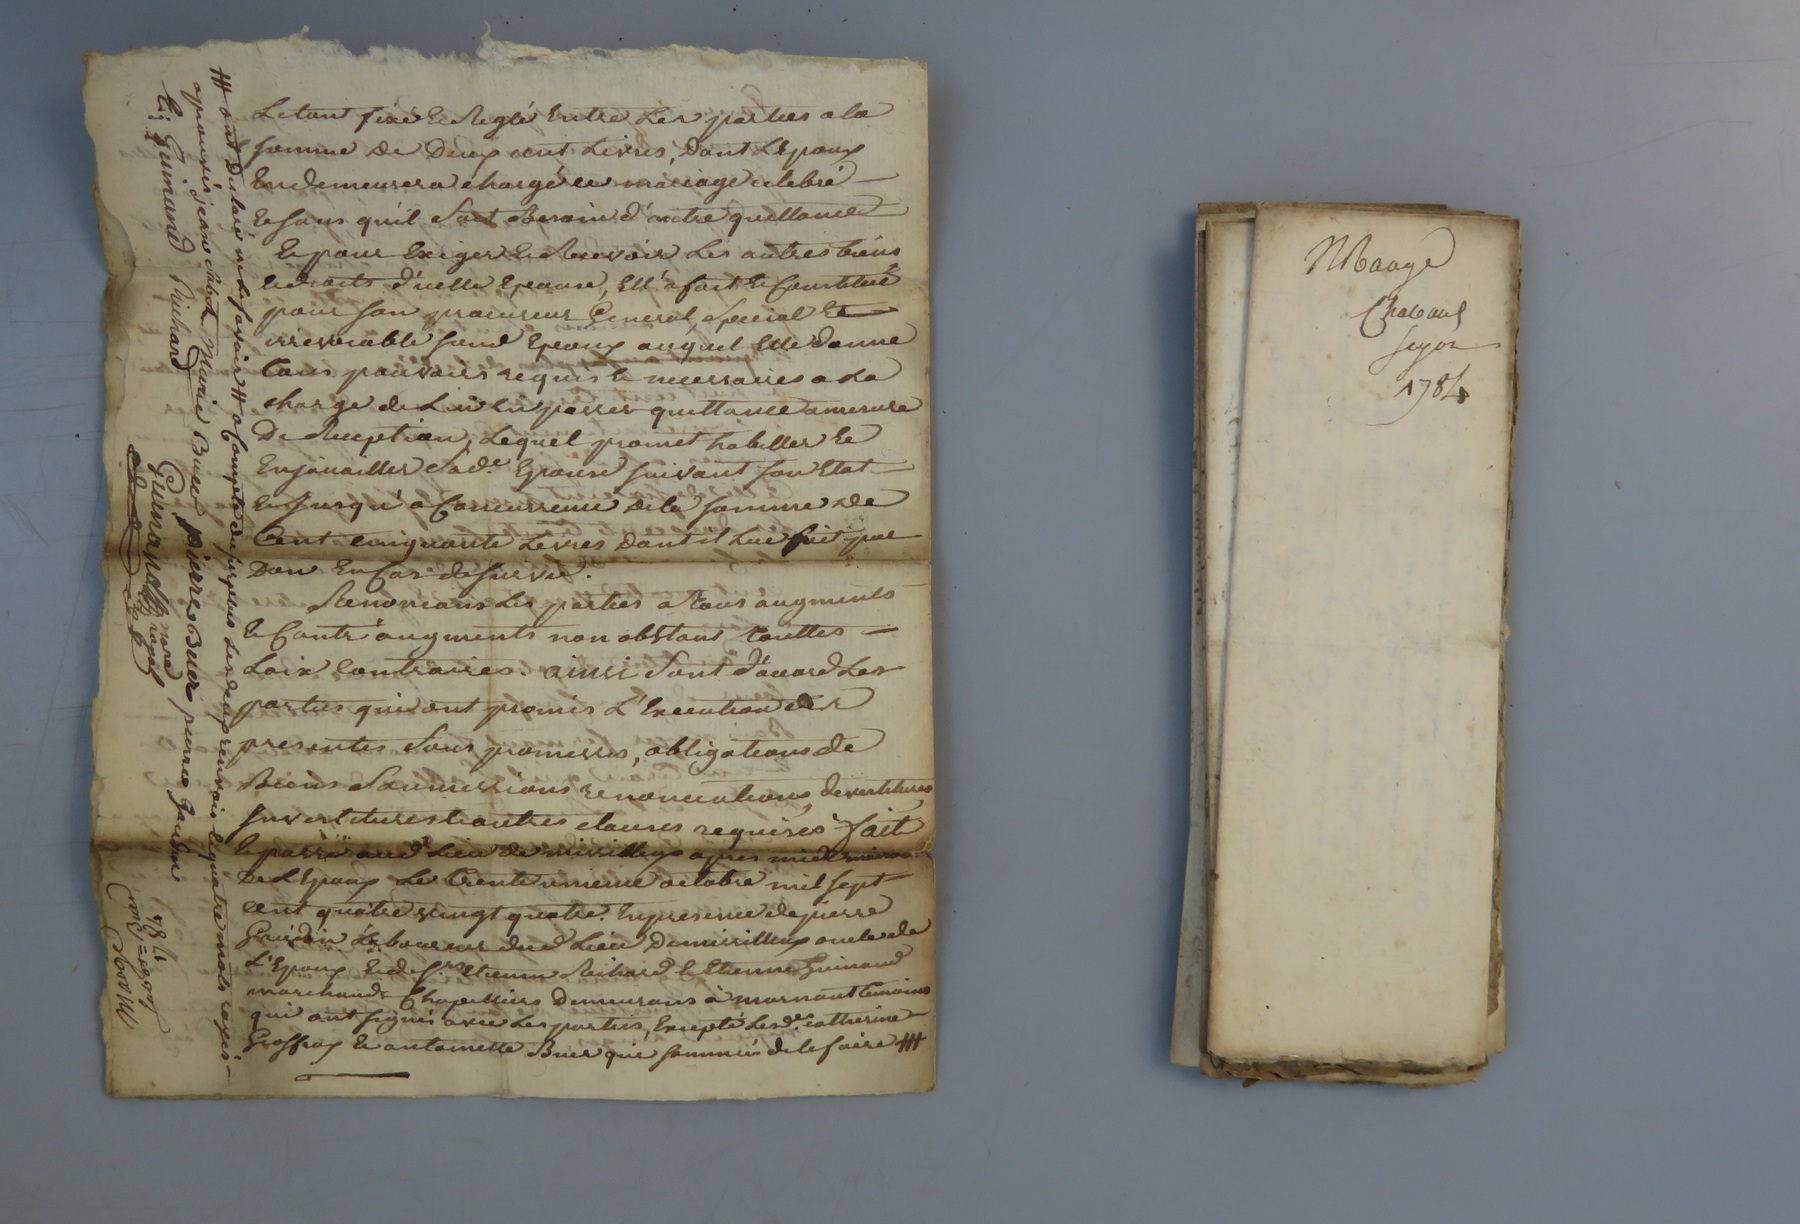 Letant fixé & Reglé Entre Les parties a la
somme de Deux cent Livres, Dont L'Epoux
En demeurera chargé ce mariage celebré
& sans qu'il soit Besoin d'autre quittance
& pour Exiger & Recevoir Les autres biens
& droits d'icelle Epouse, Ell'a fait & Constitué
pour son procureur General, special Et
irrevocable sond Epoux auquel Elle donne
tous pouvoirs requis & necessaires a la
charge de Lui En passer quittance amesure
De Reception, Lequel promet habiller &
Enjoüailler Sade Epouse suivant son Etat
& Jusqu'a Concurrence de la somme de
Cent cinquante Livres dont il Lui fait par
Don En Cas de survie.
Renoncans Les parties a tous augments
& Contr'augments non obstant touttes
Loix Contraires. ainsi sont d'accord Les
parties qui ont promis L'Execution des
presentes sous promesses, obligations de
Biens soumissions renonciations, devestitures
Investitures & autres clauses requises fait
& passé aud Lieu de apres midi maison
De L'Epoux Le trente unieme octobre mil sept
cent quatre vingt quatre. En presence de pierre
Laboureur dud Lieu oncle de
L'Epoux & de Sr Etienne Richard & Etienne Guinand
marchands Chapelliers Demeurans à mornant temoins
qui ont signés avec Les parties, Excepté Lesdes catherine
& antoinette Buer qui sommées de le faire ⧻
⧻ ont Declaré ne le savoir a Compte du surplus Les deux renvois & quatre mots rayés
approuvés jean Marie Buer pierre Buer pierre
E. Guinand Richard
Guinand
nore
royal
1784
Mbage
Chavant
1784